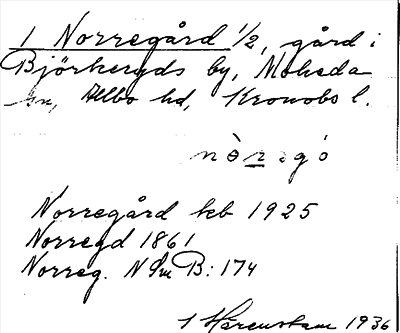 1 Norregård 1/2, gård i
Björkeryds by, Moheda
sn, Allbo hd, Kronobs l.
Norregård kb 1925
Norregd 1861
Norreg. N Sm B: 174
1936